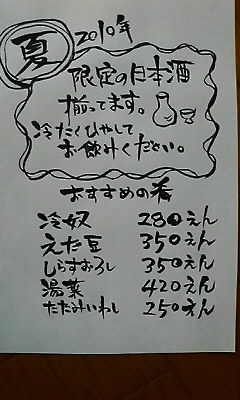 夏
2010年
限定の日本酒
揃ってます。
冷たくひやして
お飲みください。
おすすめの肴
冷奴 280えん
えだ豆 350えん
しらすおろし 350えん
湯葉 420えん
たたみいわし 250えん